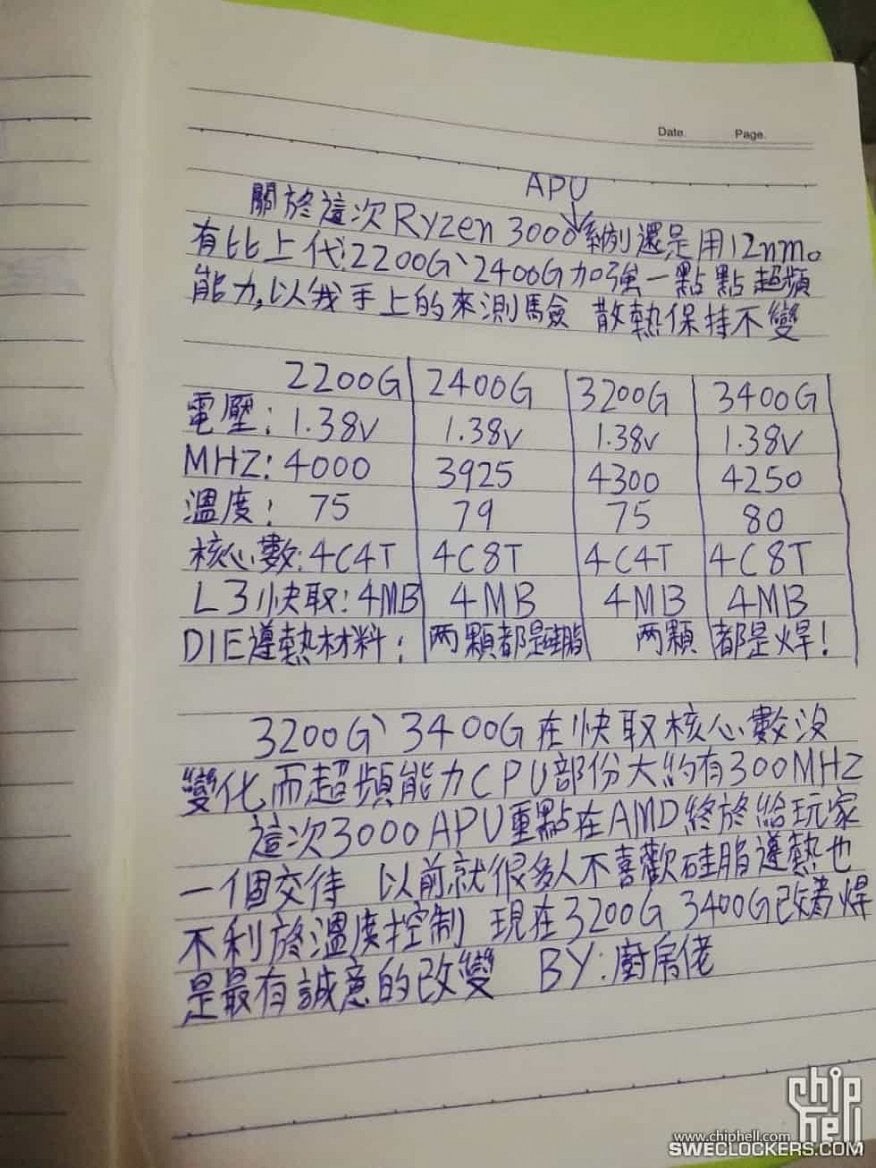 Date. Page.
APU
↓
關於這次Ryzen 3000系列還是用12nm。
有比上代2200G、2400G加強一點點超頻
能力,以我手上的來測驗 散熱保持不變
2200G 2400G 3200G 3400G
電壓: 1.38v 1.38v 1.38v 1.38v
MHZ: 4000 3925 4300 4250
溫度: 75 79 75 80
核心數:4C4T 4C8T 4C4T 4C8T
L3快取:4MB 4MB 4MB 4MB
DIE導熱材料: 两顆都是硅脂 两顆都是焊!
3200G、3400G在快取核心數沒
變化,而超頻能力CPU部份大約有300MHZ
這次3000APU重點在AMD終於給玩家
一個交待 以前就很多人不喜歡硅脂導熱也
不利於溫度控制 現在3200G 3400G改為焊
是最有誠意的改變 BY:廚房佬
chip
hell
www.chiphell.com
SWECLOCKERS.COM